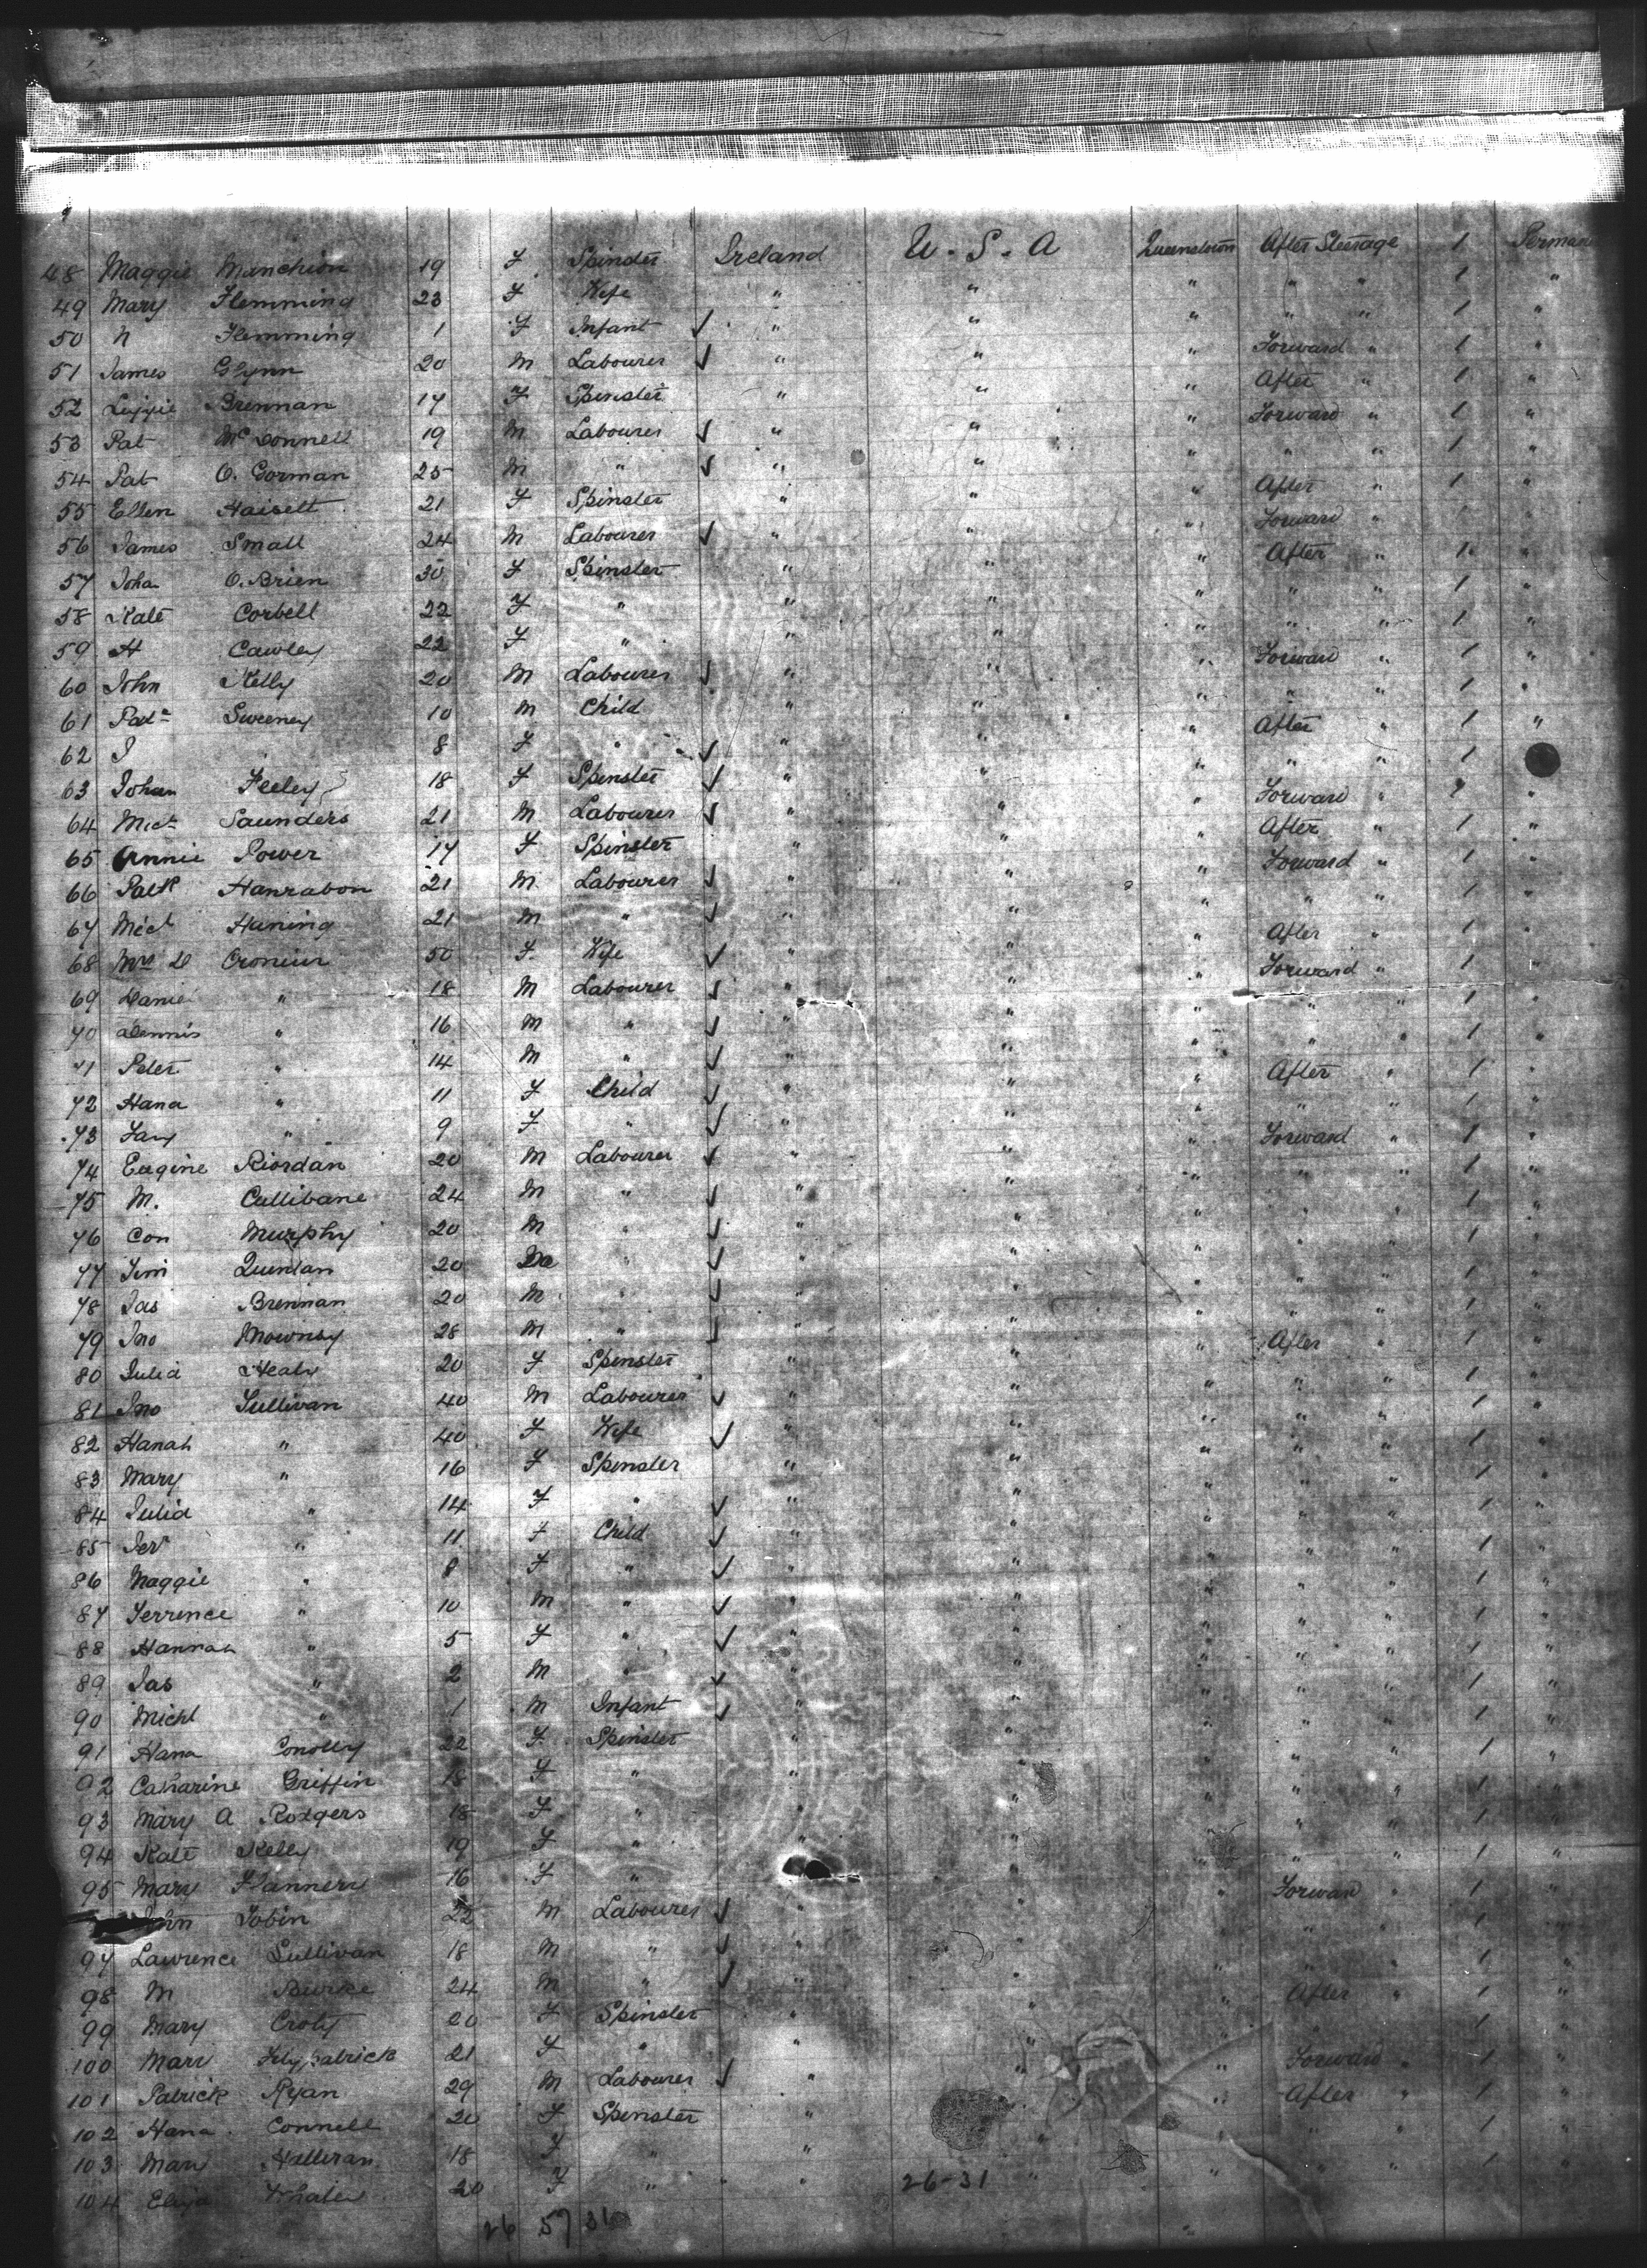 48 Maggie Manchion 19 F Spinster Ireland U.S.A Queenstown After Steerage 1 Perman
49 Mary Flemming 23 F Wife " " " " " 1 "
50 N Flemming 1 F Infant " " " " " 1 "
51 James Glynn 20 M Labourer " " " Forward " 1 "
52 Lizzie Brennan 17 F Spinster " " " After " 1 "
53 Pat McDonnell 19 M Labourer " " " Forward " 1 "
54 Pat O.Gorman 25 M " " " " " " 1 "
55 Ellen Haisett 21 F Spinster " " " After " 1 "
56 James Small 24 M Labourer " " " Forward " 1 "
57 Joha O.Brien 30 F Spinster " " " After " 1 "
58 Kate Corbett 22 F " " " " " " 1 "
59 H Cawley 22 F " " " " " " 1 "
60 John Kelly 20 M Labourer " " " Forward " 1 "
61 Patk Sweeney 10 M Child " " " " " 1 "
62 J " 8 F " " " " After " 1 "
63 Johan Feeley 18 F Spinster " " " " " 1
64 Mich Saunders 21 M Labourer " " " Forward " 1 "
65 Annie Power 17 F Spinster " " " After " 1 "
66 Patk Hanrahon 21 M Labourer " " " Forward " 1 "
67 Mich Haning 21 M " " " " " " 1 "
68 Mrs D Croneur 50 F Wife " " " After " 1 "
69 Daniel " 18 M Labourer " " " Forward " 1 "
70 Dennis " 16 M " " " " " " 1 "
71 Peter " 14 M " " " " " " 1 "
72 Hana " 11 F Child " " " After " 1 "
73 " 9 F " " " " " " 1 "
74 Eugine Riordan 20 M Labourer " " " Forward " 1 "
75 M. Cullibane 24 M " " " " " " 1 "
76 Con Murphy 20 M " " " " " " 1 "
77 Jim Quinlan 20 M " " " " " " 1 "
78 Jas Brennan 20 M " " " " " " 1 "
79 Jno 28 M " " " " " " 1 "
80 Julia Healy 20 F Spinster " " " After " 1 "
81 Jno Sullivan 40 M Labourer " " " " " 1 "
82 Hanah " 40 F Wife " " " " " 1 "
83 Mary " 16 F Spinster " " " " " 1 "
84 Julia " 14 F " " " " " " 1 "
85 Jer " 11 F Child " " " " " 1 "
86 Maggie " 8 F " " " " " " 1 "
87 Terrence " 10 M " " " " " " 1 "
88 Hannah " 5 F " " " " " " 1 "
89 Jas " 2 M " " " " " " 1 "
90 Michl " 1 M Infant " " " " " 1 "
91 Hana Conolly 22 F Spinster " " " " " 1 "
92 Catharine Griffin 18 F " " " " " " 1 "
93 Mary A Rodgers 18 F " " " " " " 1 "
94 Kate Kelly 19 F " " " " " " 1 "
95 Mary Flannery 16 F " " " " " " 1 "
John Tobin 22 M Labourer " " " Forward " 1 "
97 Lawrence Sullivan 18 M " " " " " " 1 "
98 M Burke 24 M " " " " " " 1 "
99 Mary Croty 20 F Spinster " " " After " 1 "
100 Mary Fitzpatrick 21 F " " " " " " 1 "
101 Patrick Ryan 29 M Labourer " " " Forward " 1 "
102 Hana Connell 20 F Spinster " " " After " 1 "
103 Mary Halleran 18 F " " " " " " 1 "
104 Eliza 20 F " " " " " " 1 "
26-31
26 57 31